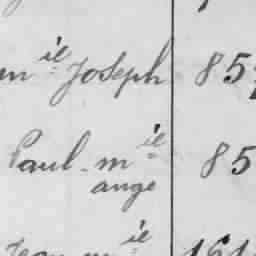 m ie Joseph 85
Paul. m ie 85
ange
ie 161